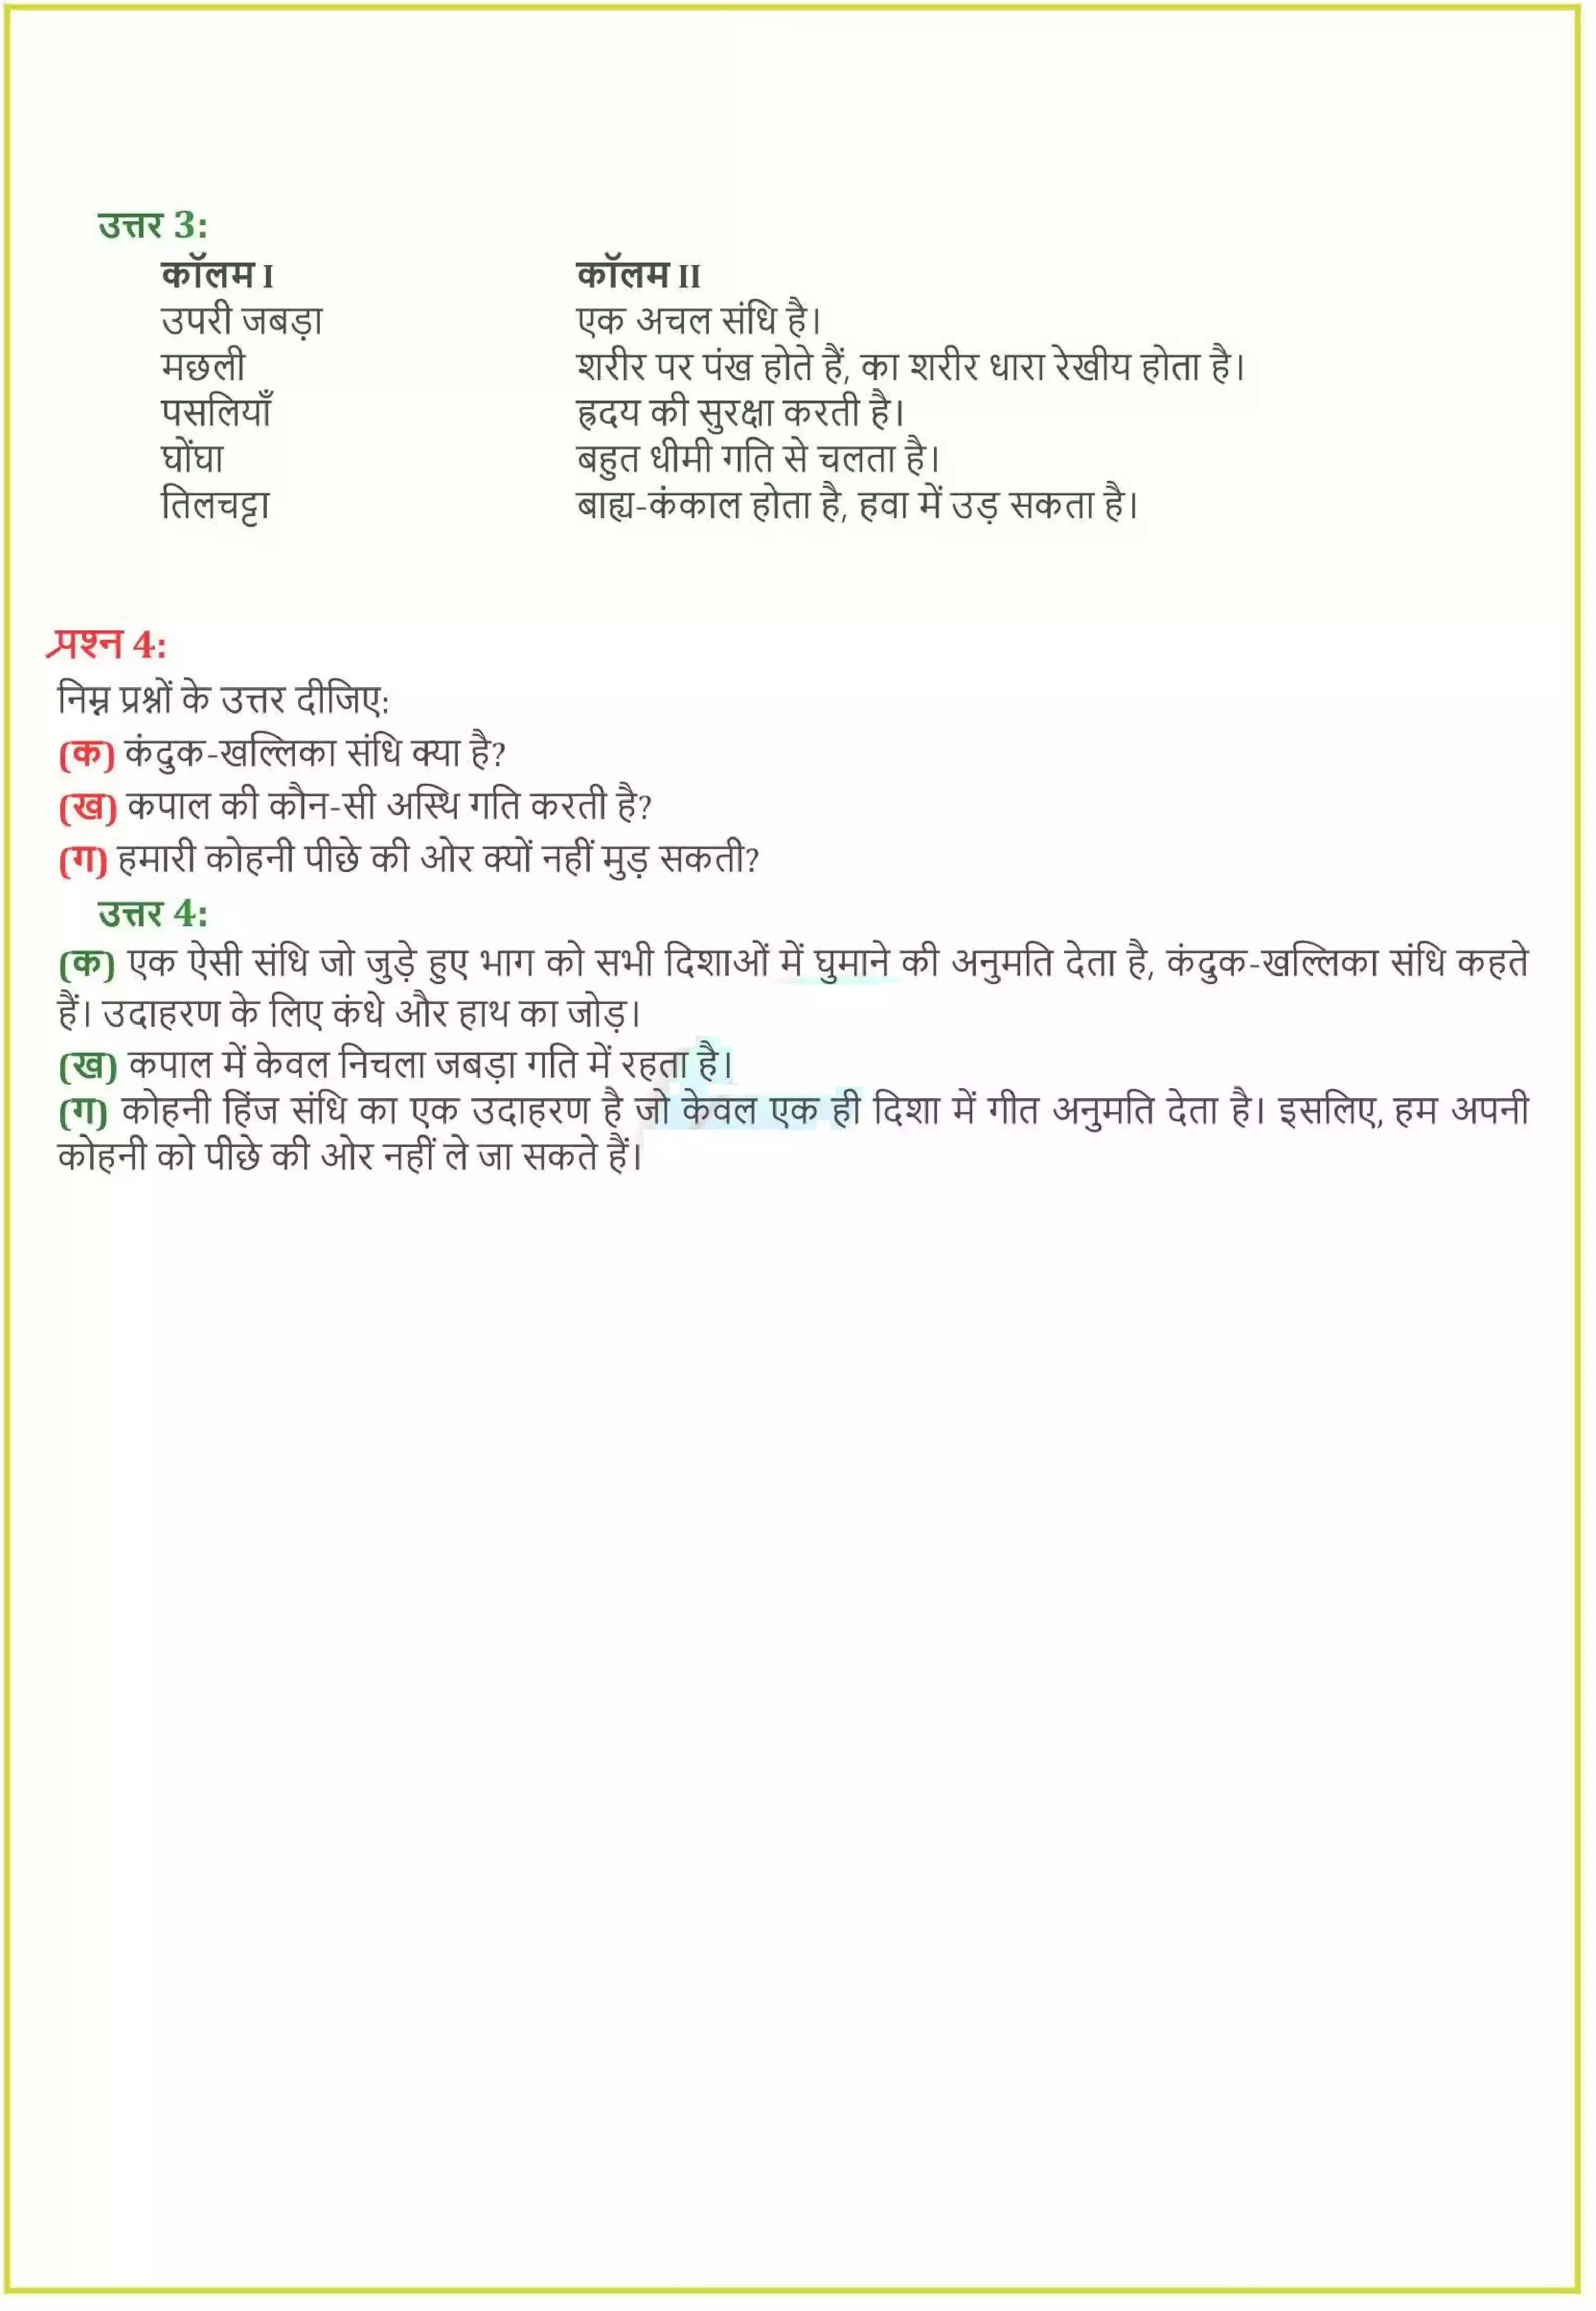 उत्तर 3:
कॉलम I कॉलम II
उपरी जबड़ा एक अचल संधि है।
मछली शरीर पर पंख होते हैं, का शरीर धारा रेखीय होता है।
पसलियाँ ह्रदय की सुरक्षा करती है।
घोंघा बहुत धीमी गति से चलता है।
तिलचट्टा बाह्य-कंकाल होता है, हवा में उड़ सकता है।
प्रश्न 4:
निम्न प्रश्नों के उत्तर दीजिए:
(क) कंदुक-खल्लिका संधि क्या है?
(ख) कपाल की कौन-सी अस्थि गति करती है?
(ग) हमारी कोहनी पीछे की ओर क्यों नहीं मुड़ सकती?
उत्तर 4:
(क) एक ऐसी संधि जो जुड़े हुए भाग को सभी दिशाओं में घुमाने की अनुमति देता है, कंदुक-खल्लिका संधि कहते
हैं। उदाहरण के लिए कंधे और हाथ का जोड़।
(ख) कपाल में केवल निचला जबड़ा गति में रहता है।
(ग) कोहनी हिंज संधि का एक उदाहरण है जो केवल एक ही दिशा में गीत अनुमति देता है। इसलिए, हम अपनी
कोहनी को पीछे की ओर नहीं ले जा सकते हैं।